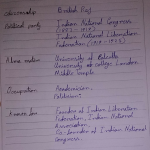 citizenship British Raj
Political party Indian National Congress
Indian National Liberation
Federation
Alma mater University of Calcutta
University College London
Middle Temple
Occupation Academician,
Known for Founder of Indian Liberation
Federation, Indian National
Association,
Co-founder of Indian National
Congress